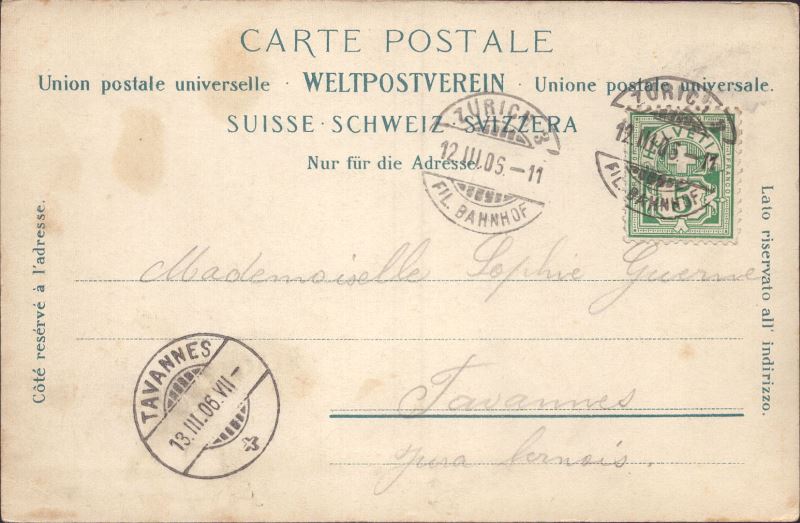 CARTE POSTALE
Union postale universelle · WELTPOSTVEREIN · Unione postale universale.
SUISSE · SCHWEIZ · SVIZZERA
Nur für die Adresse.
ZÜRICH 3
12.III.06.–11
FIL. BAHNHOF
ZÜRICH 3
12.III.06.–11
FIL. BAHNHOF
HELVETIA
FRANCO
5
Côté reservé à l'adresse.
Lato riservato all' indirizzo.
Mademoiselle Sophie Guerne
Tavannes
Jura bernois.
TAVANNES
13.III.06.VII–